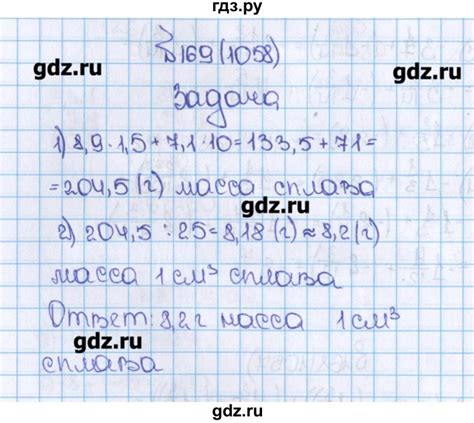 гдз.ру
№169(1058)
gdz.ru gdz.ru
Задача
1) 8,9·1,5+7,1·10=133,5+71=
=204,5 (г) масса сплава
gdz.ru
2) 204,5:25=8,18 (г)≈8,2(г)
масса 1 см³ сплава
Ответ: 8,2 г масса 1 см³
gdz.ru
сплава
gdz.ru